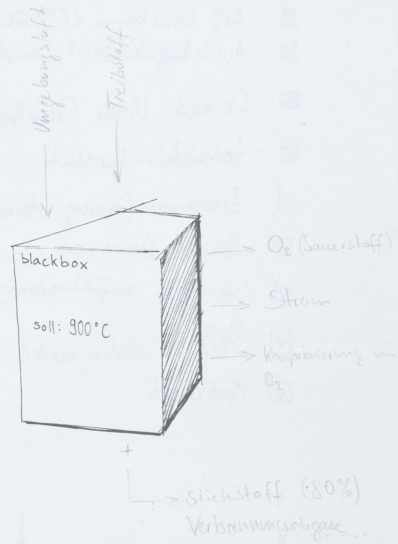 Umgebungsluft
Treibstoff
blackbox
soll: 900°C
O₂ (Sauerstoff)
Strom
Komprimierung von
O₂
+
Stickstoff (~80%)
Verbrennungsabgase